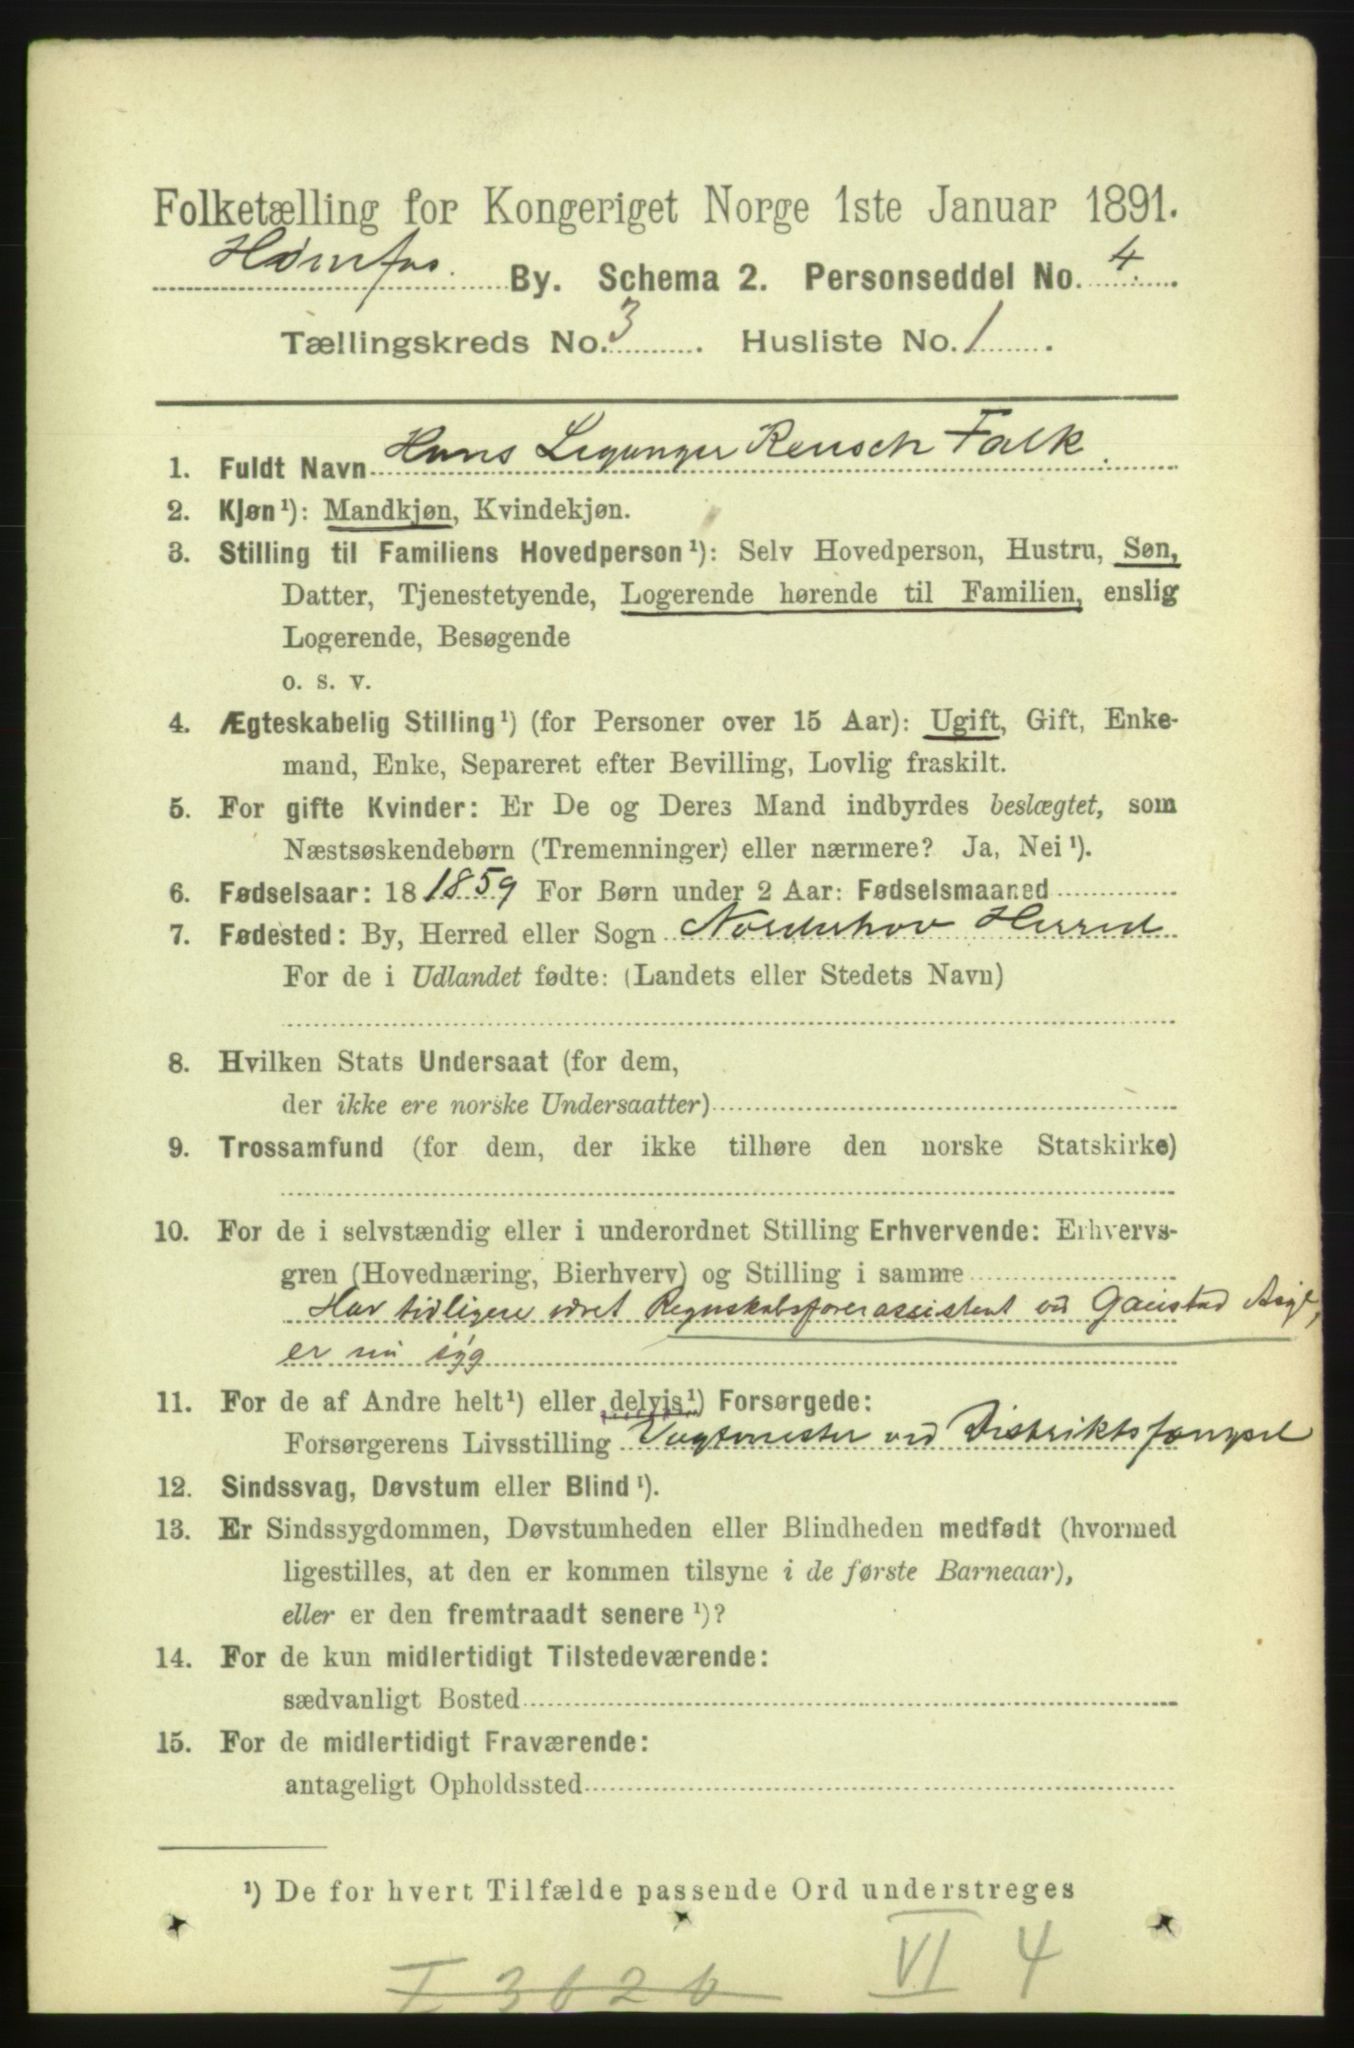 Folketælling for Kongeriget Norge 1ste Januar 1891.
Hønefos. By. Schema 2. Personseddel No. 4.
Tællingskreds No. 3. Husliste No. 1.
1. Fuldt Navn Hans Leganger Reusch Falk.
2. Kjøn¹): Mandkjøn, Kvindekjøn.
3. Stilling til Familiens Hovedperson¹): Selv Hovedperson, Hustru, Søn,
Datter, Tjenestetyende, Logerende hørende til Familien, enslig
Logerende, Besøgende
o. s. v.
4. Ægteskabelig Stilling¹) (for Personer over 15 Aar): Ugift, Gift, Enke-
mand, Enke, Separeret efter Bevilling, Lovlig fraskilt.
5. For gifte Kvinder: Er De og Deres Mand indbyrdes beslægtet, som
Næstsøskendebørn (Tremenninger) eller nærmere? Ja, Nei¹).
6. Fødselsaar: 18 1859 For Børn under 2 Aar: Fødselsmaaned
7. Fødested: By, Herred eller Sogn Norderhov Herred
For de i Udlandet fødte: (Landets eller Stedets Navn)
8. Hvilken Stats Undersaat (for dem,
der ikke ere norske Undersaatter)
9. Trossamfund (for dem, der ikke tilhøre den norske Statskirke)
10. For de i selvstændig eller i underordnet Stilling Erhvervende: Erhvervs-
gren (Hovednæring, Bierhverv) og Stilling i samme
Har tidligere været Regnskabsførerassistent ved Gaustad Asyl,
er nu syg
11. For de af Andre helt¹) eller delvis¹) Forsørgede:
Forsørgerens Livsstilling Vagtmester ved Distriktsfængsel
12. Sindssvag, Døvstum eller Blind¹).
13. Er Sindssygdommen, Døvstumheden eller Blindheden medfødt (hvormed
ligestilles, at den er kommen tilsyne i de første Barneaar),
eller er den fremtraadt senere¹)?
14. For de kun midlertidigt Tilstedeværende:
sædvanligt Bosted
15. For de midlertidigt Fraværende:
antageligt Opholdssted
¹) De for hvert Tilfælde passende Ord understreges
I 3626 VI 4